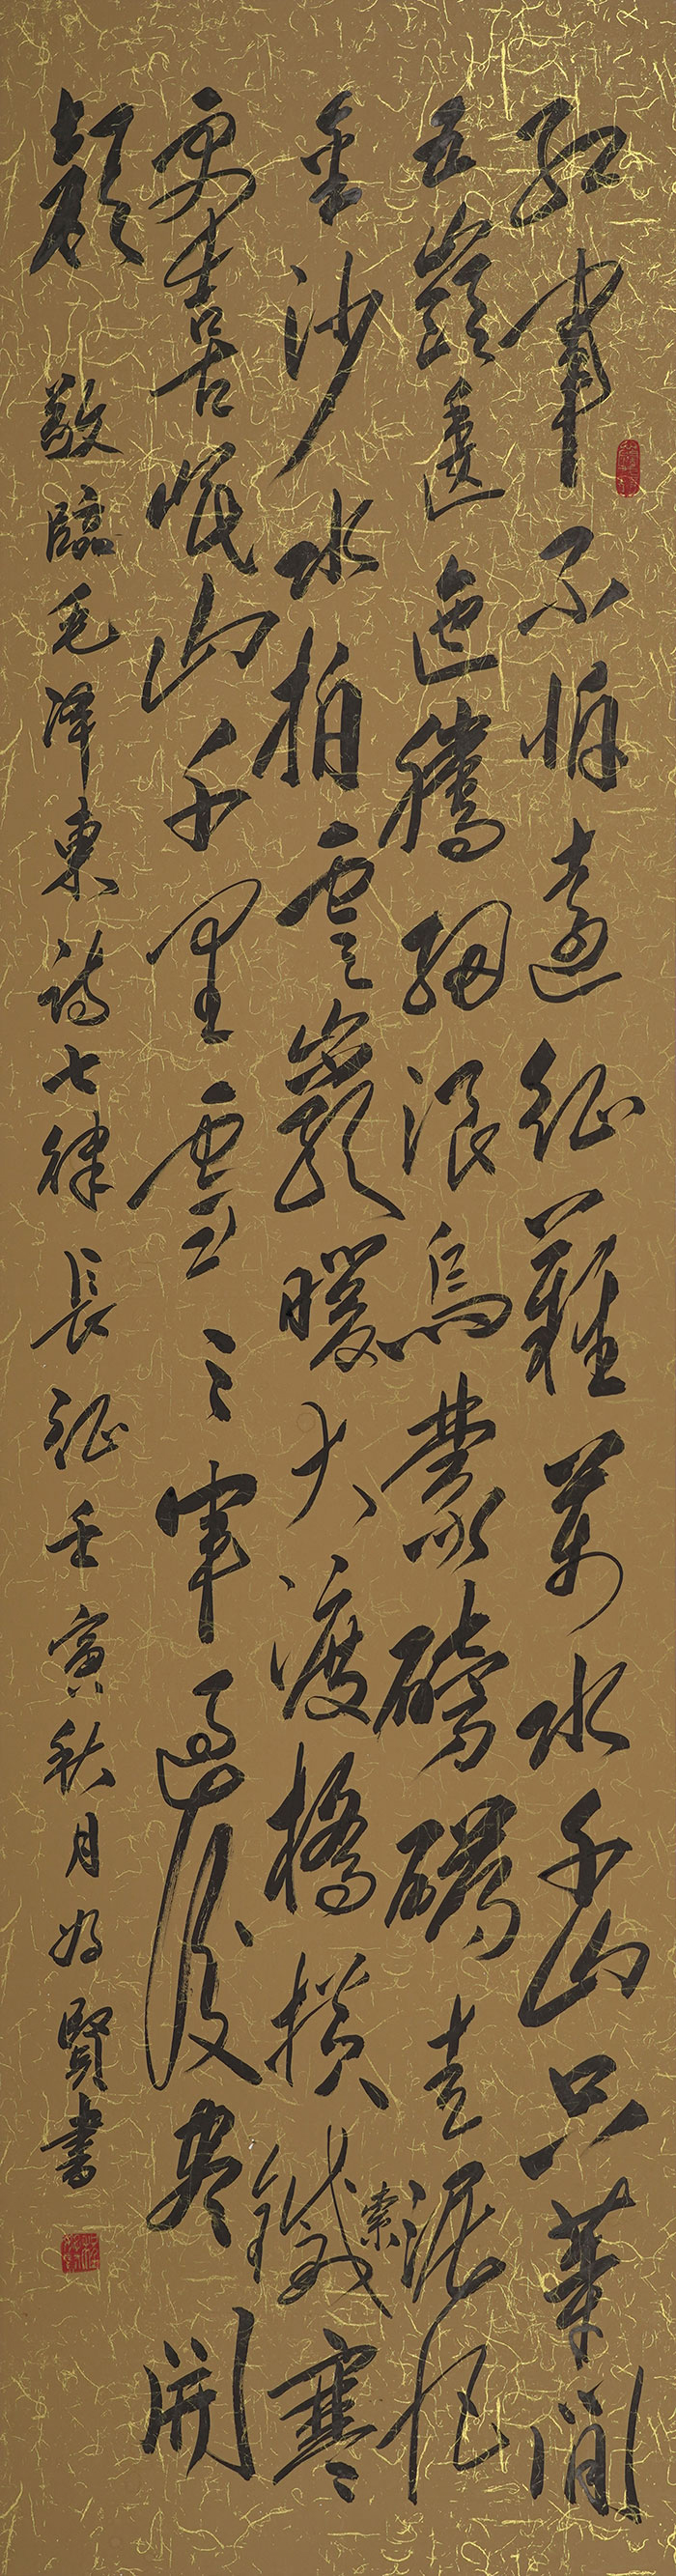 紅軍不怕遠征難萬水千山只等閒
五嶺逶迤騰細浪烏蒙磅礴走泥丸
金沙水拍雲巖暖大渡橋橫鐵索寒
更喜岷山千里雪三軍過後盡開
顏 敬臨毛澤東詩七律長征壬寅秋月為賢書